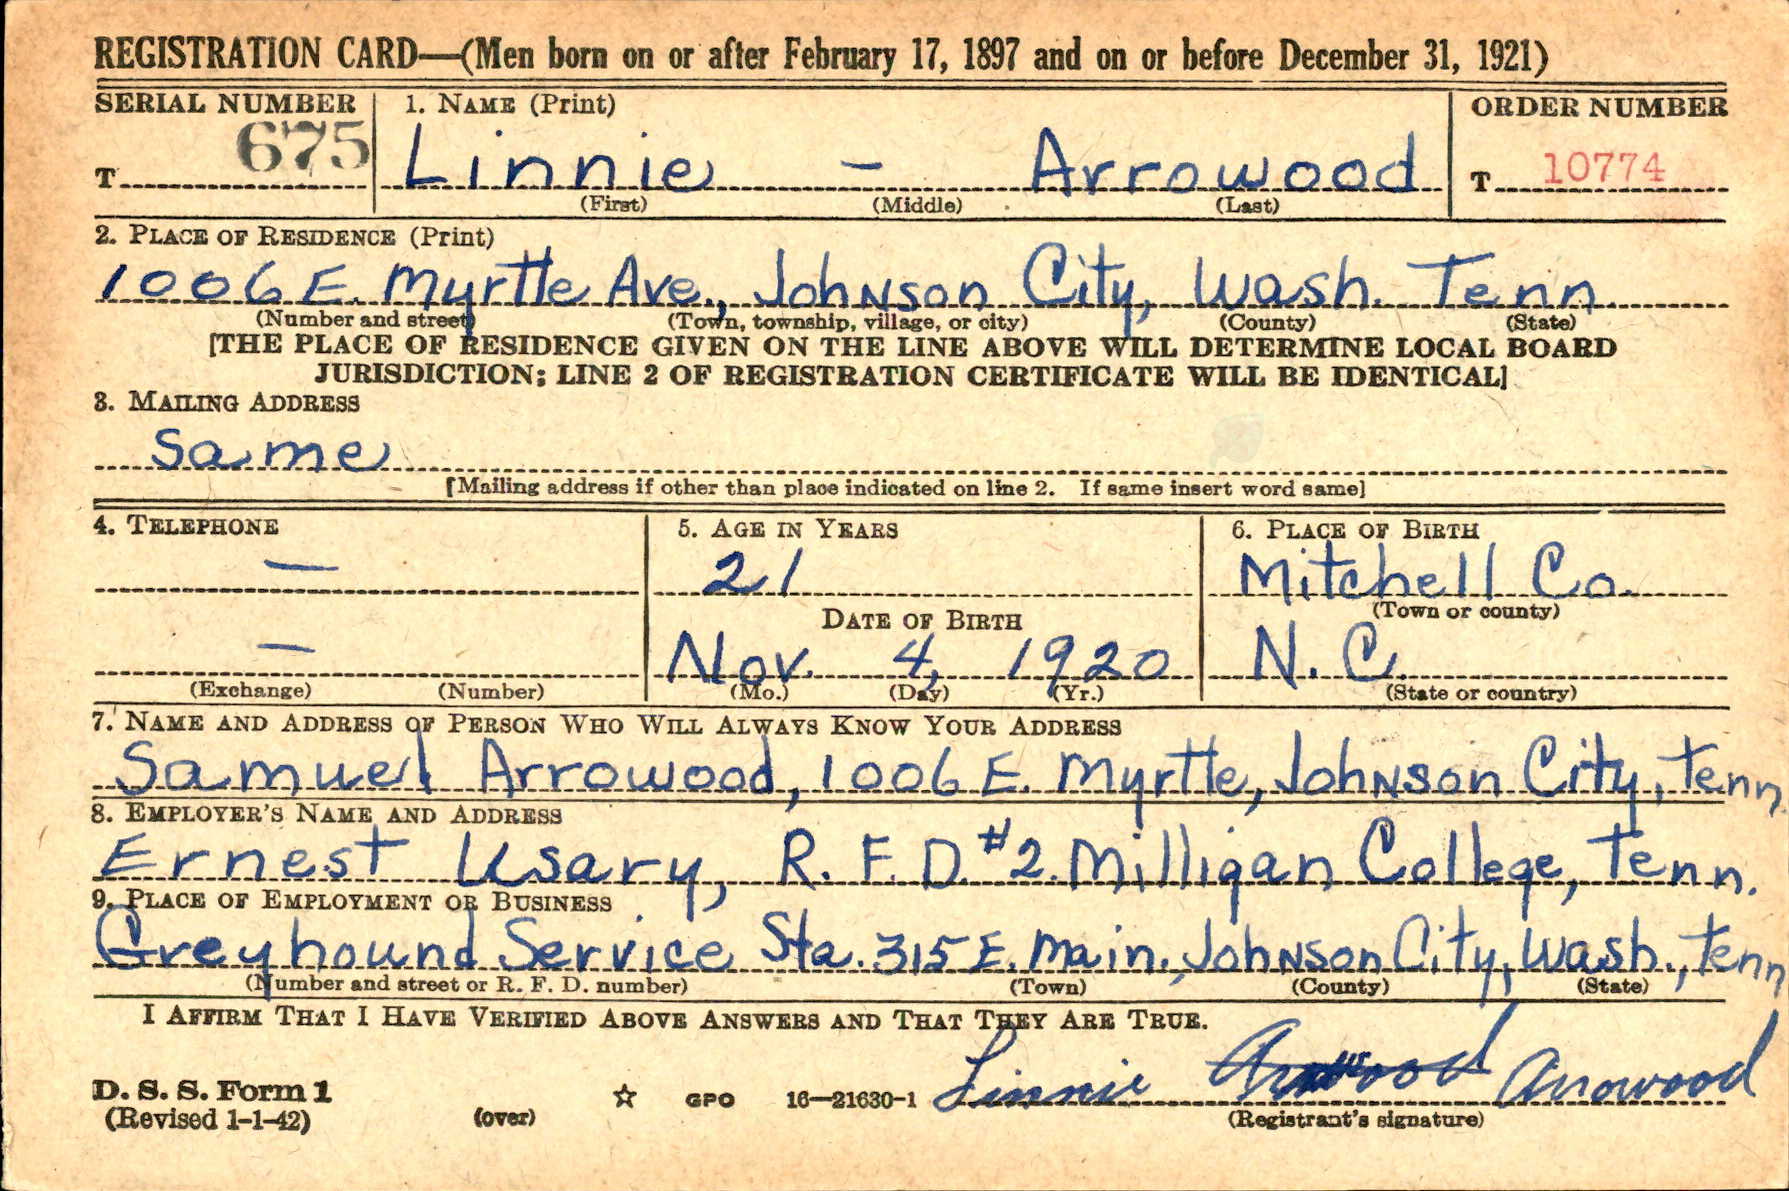 REGISTRATION CARD—(Men born on or after February 17, 1897 and on or before December 31, 1921)
SERIAL NUMBER 1. NAME (Print) ORDER NUMBER
T 675 Linnie — Arrowood T 10774
(First) (Middle) (Last)
2. PLACE OF RESIDENCE (Print)
1006 E. Myrtle Ave., Johnson City, Wash. Tenn.
(Number and street) (Town, township, village, or city) (County) (State)
[THE PLACE OF RESIDENCE GIVEN ON THE LINE ABOVE WILL DETERMINE LOCAL BOARD
JURISDICTION; LINE 2 OF REGISTRATION CERTIFICATE WILL BE IDENTICAL]
3. MAILING ADDRESS
Same
[Mailing address if other than place indicated on line 2. If same insert word same]
4. TELEPHONE 5. AGE IN YEARS 6. PLACE OF BIRTH
— 21 Mitchell Co.
DATE OF BIRTH (Town or county)
— Nov. 4, 1920 N. C.
(Exchange) (Number) (Mo.) (Day) (Yr.) (State or country)
7. NAME AND ADDRESS OF PERSON WHO WILL ALWAYS KNOW YOUR ADDRESS
Samuel Arrowood, 1006 E. Myrtle, Johnson City, Tenn
8. EMPLOYER'S NAME AND ADDRESS
Ernest Usary, R. F. D. #2. Milligan College, Tenn.
9. PLACE OF EMPLOYMENT OR BUSINESS
Greyhound Service Sta. 315 E. Main. Johnson City, Wash., Tenn
(Number and street or R. F. D. number) (Town) (County) (State)
I AFFIRM THAT I HAVE VERIFIED ABOVE ANSWERS AND THAT THEY ARE TRUE.
D. S. S. Form 1
(Revised 1-1-42) (over) ☆ GPO 16—21630-1 Linnie Arrowood
(Registrant's signature)